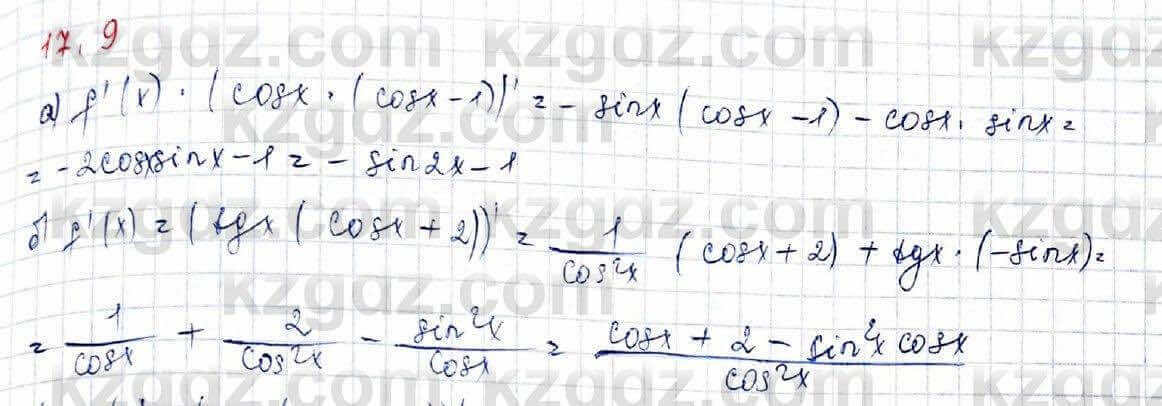 17.9
а) f'(x) · (cosx · (cosx − 1))' = − sinx (cosx − 1) − cosx · sinx =
= −2cosxsinx − 1 = − sin2x − 1
б) f'(x) = (tgx (cosx + 2))' = 1/cos²x (cosx + 2) + tgx · (−sinx) =
= 1/cosx + 2/cos²x − sin²x/cosx = cosx + 2 − sin²x cosx/cos²x
kzgdz.com kzgdz.com kzgdz.com